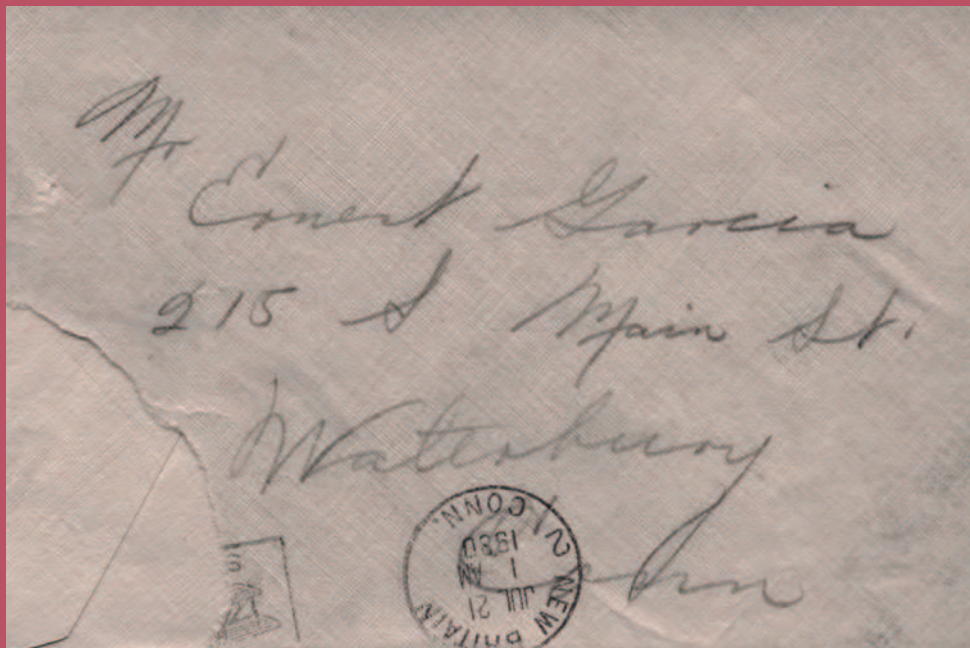 Mr
Ernest Garcia
215 S Main St.
Waterbury
Conn
NEW BRITAIN
JUL 21
1 AM
1930
2 CONN.